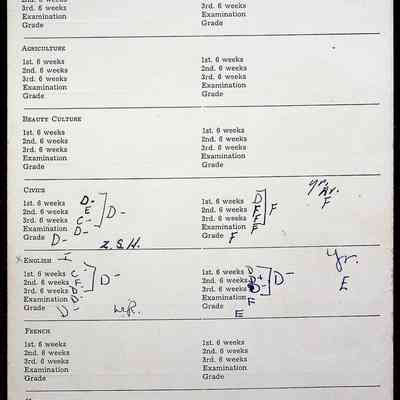 2nd. 6 weeks
3rd. 6 weeks 3rd. 6 weeks
Examination Examination
Grade Grade
AGRICULTURE
1st. 6 weeks 1st. 6 weeks
2nd. 6 weeks 2nd. 6 weeks
3rd. 6 weeks 3rd. 6 weeks
Examination Examination
Grade Grade
BEAUTY CULTURE
1st. 6 weeks 1st. 6 weeks
2nd. 6 weeks 2nd. 6 weeks
3rd. 6 weeks 3rd. 6 weeks
Examination Examination
Grade Grade
CIVICS yr.
1st. 6 weeks D- 1st. 6 weeks D Av.
2nd. 6 weeks E 2nd. 6 weeks F F
3rd. 6 weeks C- D- 3rd. 6 weeks F F
Examination D- Examination F
Grade D- Z.S.H. Grade F
x ENGLISH I Yr.
1st. 6 weeks C- 1st. 6 weeks D
2nd. 6 weeks F D- 2nd. 6 weeks D+ D- E
3rd. 6 weeks D 3rd. 6 weeks D-
Examination D- Examination F
Grade D- Grade E
FRENCH
1st. 6 weeks 1st. 6 weeks
2nd. 6 weeks 2nd. 6 weeks
3rd. 6 weeks 3rd. 6 weeks
Examination Examination
Grade Grade